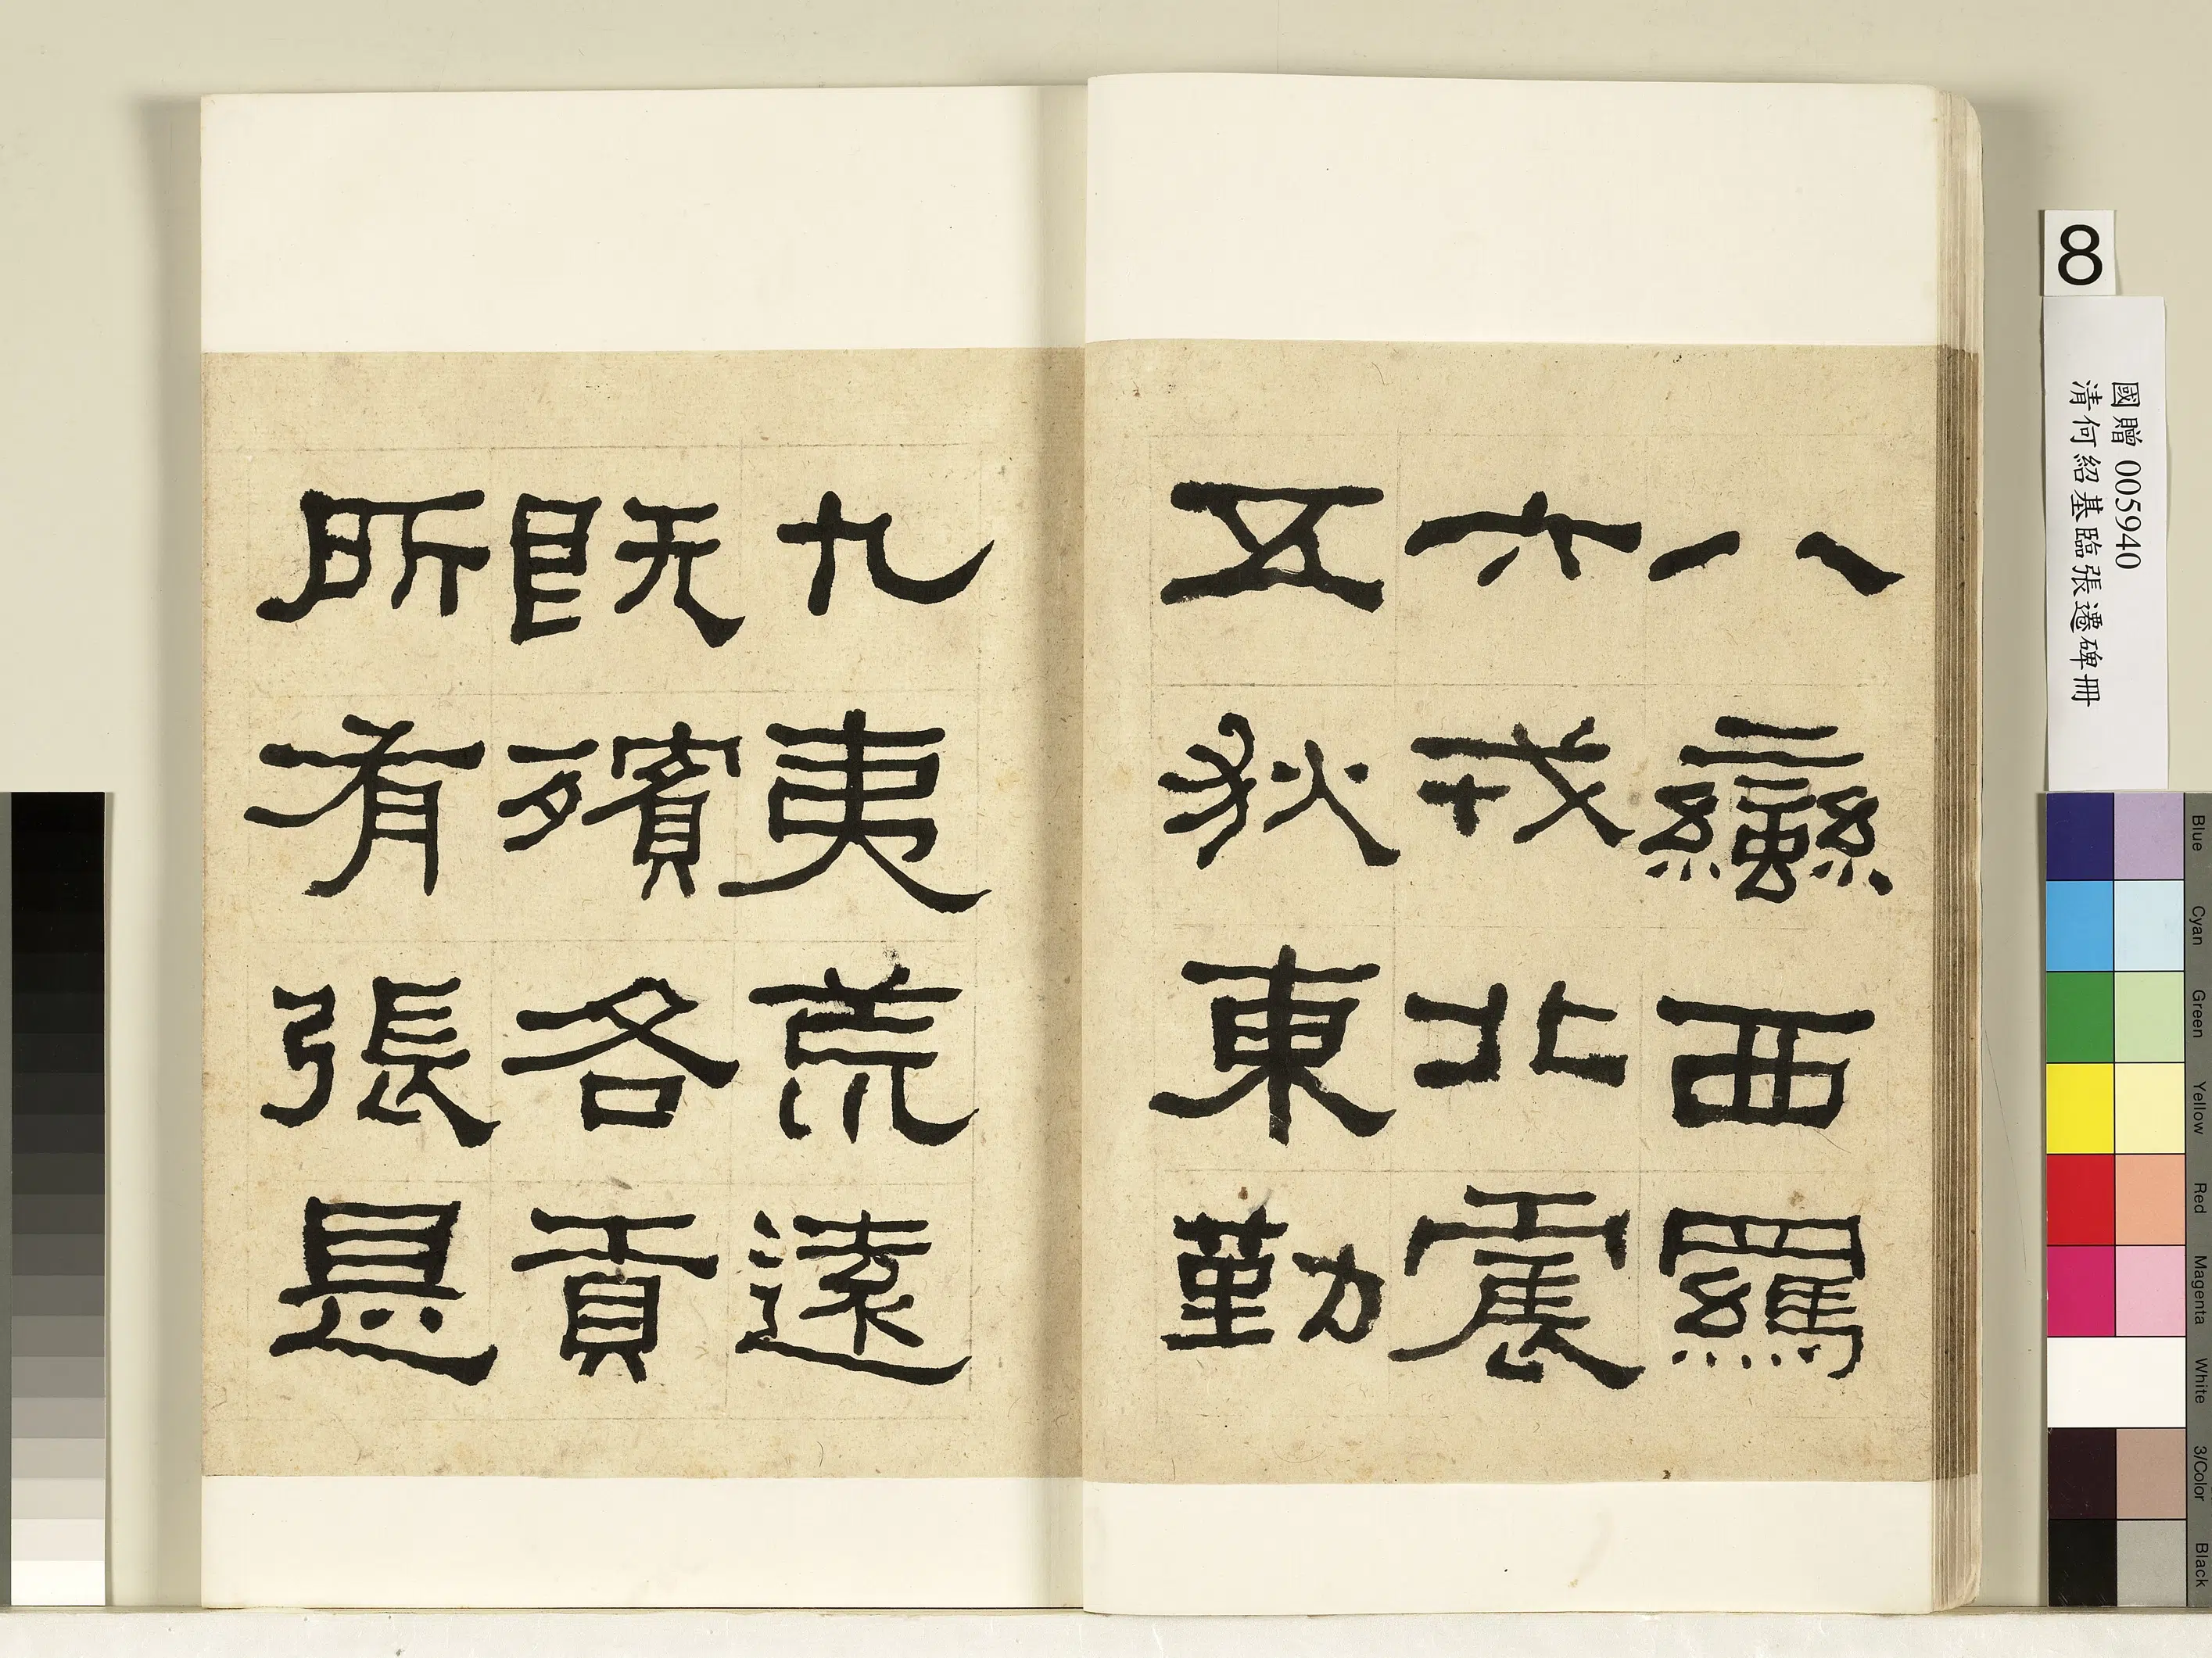 八蠻西羈
六戎北震
五狄東勤
九夷荒遠
既殯各貢
所有張是
8
國贈 005940
清何紹基臨張遷碑冊
Blue
Cyan
Green
Yellow
Red
Magenta
White
3/Color
Black